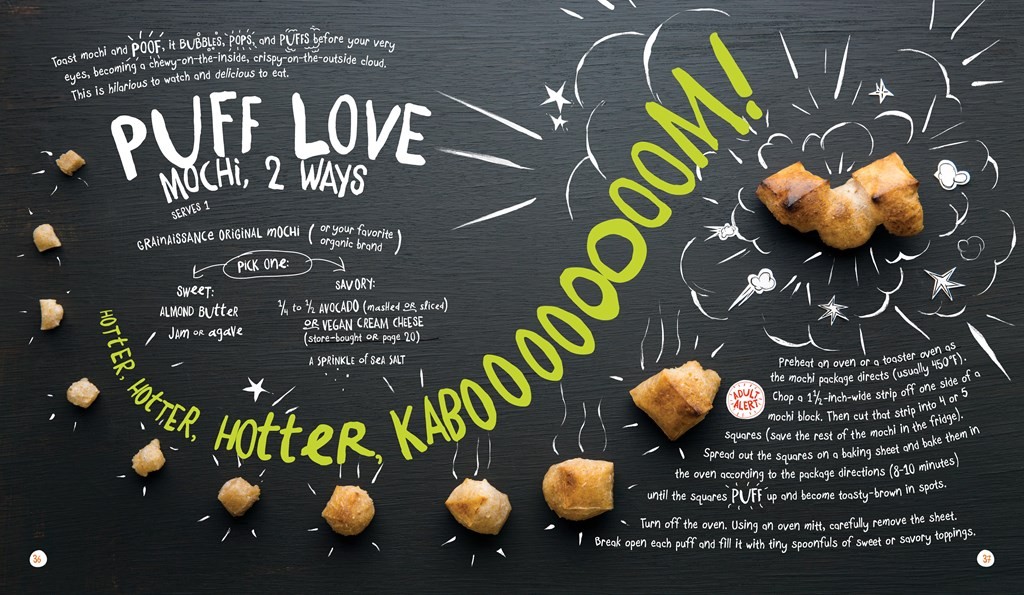 Toast mochi and POOF, it BUBBLES, POPS, and PUFFS before your very
eyes, becoming a chewy-on-the-inside, crispy-on-the-outside cloud.
This is hilarious to watch and delicious to eat.
PUFF LOVE
MOCHI, 2 WAYS
SERVES 1
GRAINAISSANCE ORIGINAL MOCHI (or your favorite
organic brand)
PICK ONE:
SWEET:
ALMOND Butter
Jam OR agave
SAVORY:
1/4 to 1/2 AVOCADO (mashed OR sliced)
OR VEGAN CREAM CHEESE
(store-bought OR page 20)
A SPRINKLE of Sea SALT
HOTTER, HOTTER, HOTTER, KABOOOOOOOOOM!
ADULT
ALERT
Preheat an oven or a toaster oven as
the mochi package directs (usually 450°F).
Chop a 1 1/2-inch-wide strip off one side of a
mochi block. Then cut that strip into 4 or 5
squares (save the rest of the mochi in the fridge).
Spread out the squares on a baking sheet and bake them in
the oven according to the package directions (8-10 minutes)
until the squares PUFF up and become toasty-brown in spots.
Turn off the oven. Using an oven mitt, carefully remove the sheet.
Break open each puff and fill it with tiny spoonfuls of sweet or savory toppings.
36
37